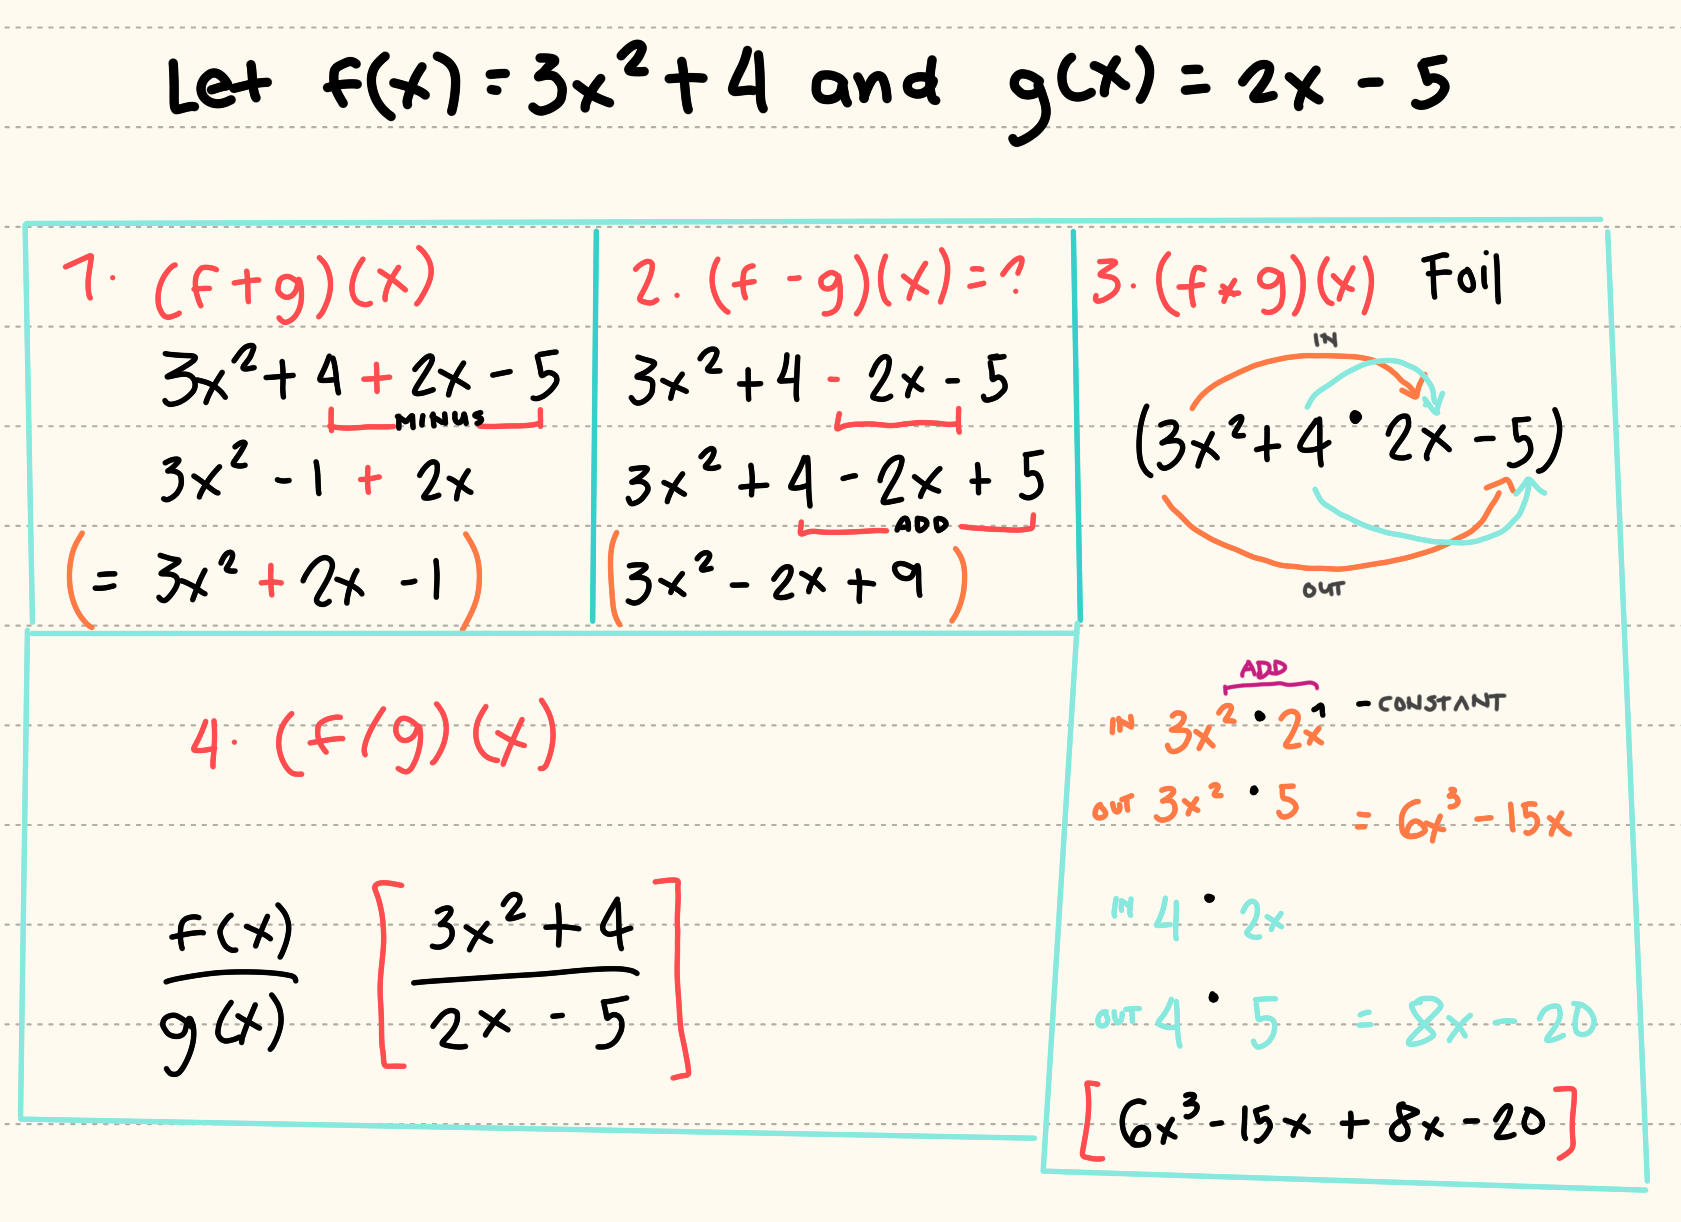 Let f(x) = 3x² + 4 and g(x) = 2x - 5
1. (f + g)(x)
3x² + 4 + 2x - 5
MINUS
3x² - 1 + 2x
( = 3x² + 2x - 1 )
2. (f - g)(x) = ?
3x² + 4 - 2x - 5
3x² + 4 - 2x + 5
ADD
( 3x² - 2x + 9 )
3. (f * g)(x) Foil
IN
(3x² + 4 · 2x - 5)
OUT
ADD
IN 3x² · 2x¹ - CONSTANT
OUT 3x² · 5 = 6x³ - 15x
IN 4 · 2x
OUT 4 · 5 = 8x - 20
[6x³ - 15x + 8x - 20]
4. (f/g)(x)
f(x)
g(x)
3x² + 4
2x - 5